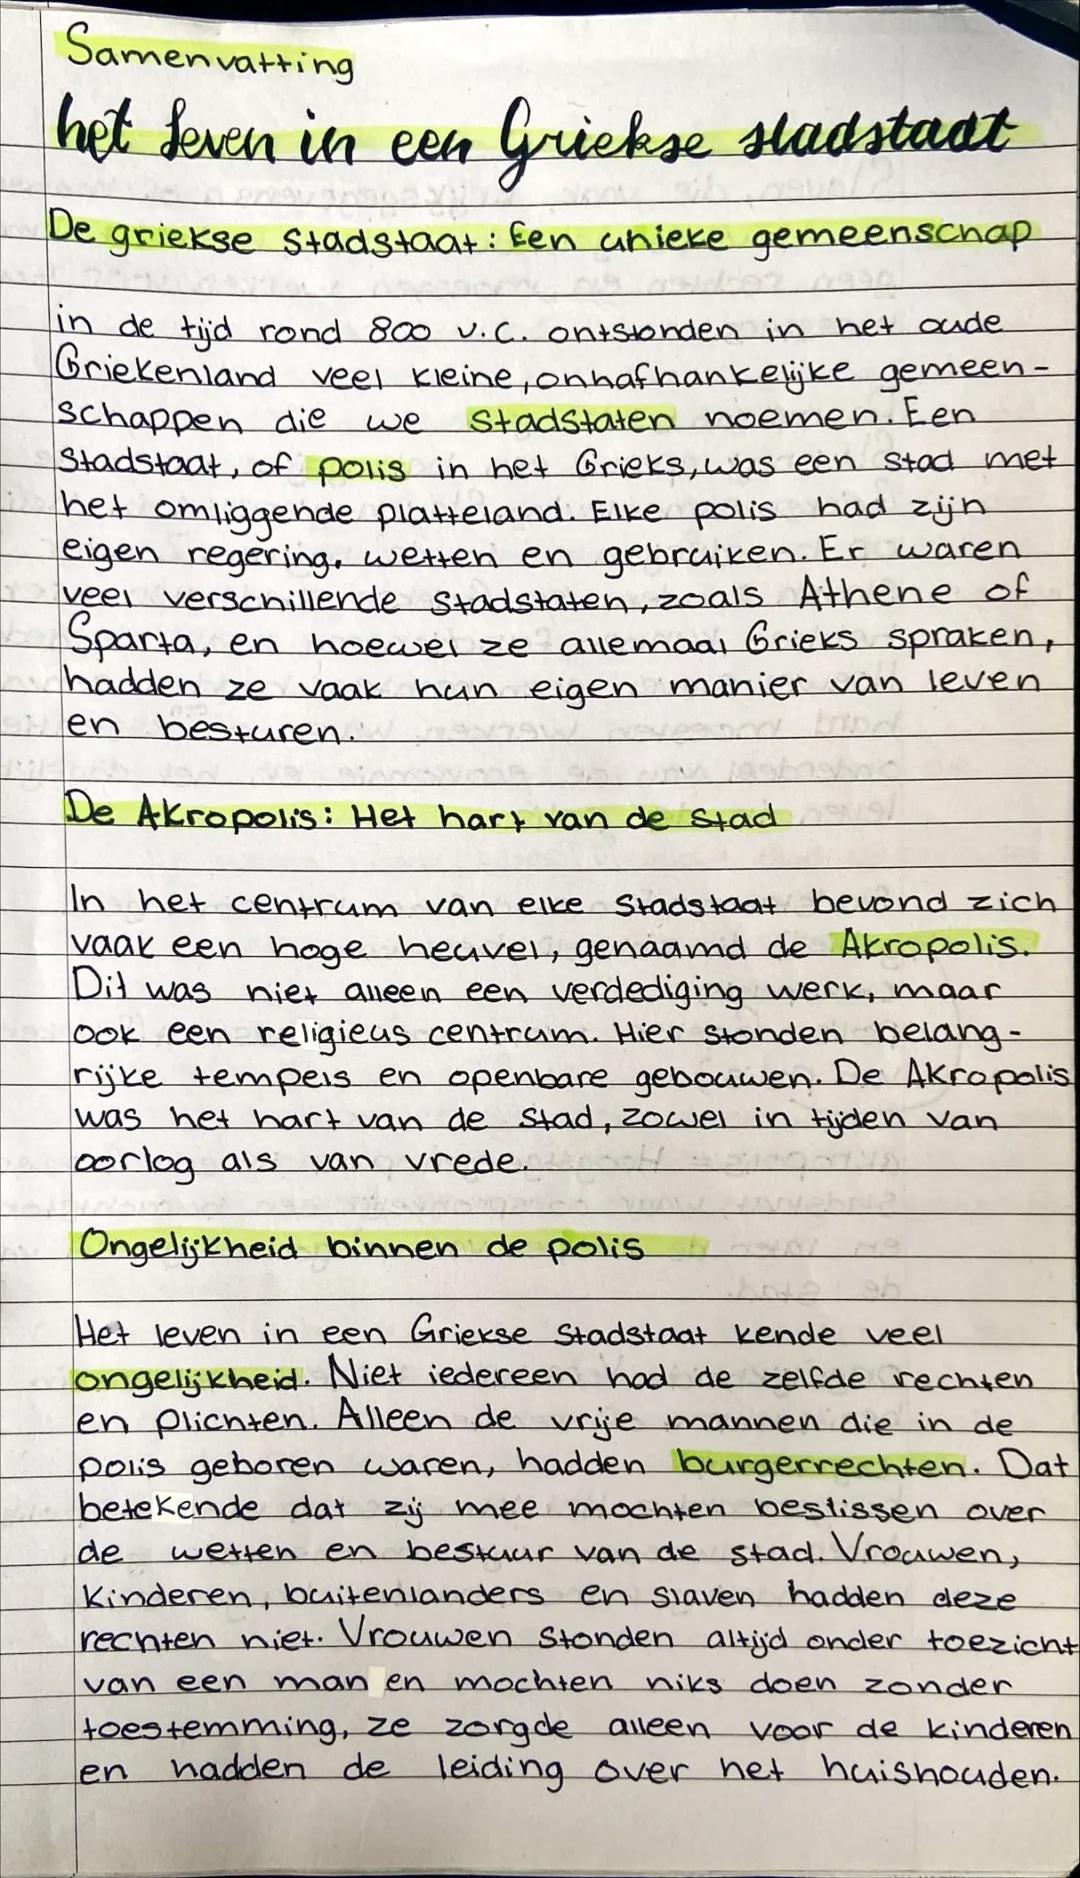 Samenvatting
het leven in een Griekse stadstaat
De griekse stadstaat: Een unieke gemeenschap
in de tijd rond 800 v.C. ontstonden in het oude
Griekenland veel kleine, onhafhankelijke gemeen-
schappen die we stadstaten noemen. Een
stadstaat, of polis in het Grieks, was een stad met
het omliggende platteland. Elke polis had zijn
eigen regering, wetten en gebruiken. Er waren
veel verschillende stadstaten, zoals Athene of
Sparta, en hoewel ze allemaal Grieks spraken,
hadden ze vaak hun eigen manier van leven
en besturen.
De Akropolis: Het hart van de stad
In het centrum van elke stadstaat bevond zich
vaak een hoge heuvel, genaamd de Akropolis.
Dit was niet alleen een verdediging werk, maar
ook een religieus centrum. Hier stonden belang-
rijke tempels en openbare gebouwen. De Akropolis
was het hart van de stad, zowel in tijden van
oorlog als van vrede.
Ongelijkheid binnen de polis
Het leven in een Griekse stadstaat kende veel
ongelijkheid. Niet iedereen had de zelfde rechten
en plichten. Alleen de vrije mannen die in de
polis geboren waren, hadden burgerrechten. Dat
betekende dat zij mee mochten beslissen over
de wetten en bestuur van de stad. Vrouwen,
kinderen, buitenlanders en slaven hadden deze
rechten niet. Vrouwen stonden altijd onder toezicht
van een man en mochten niks doen zonder
toestemming, ze zorgde alleen voor de kinderen
en hadden de leiding over het huishouden.